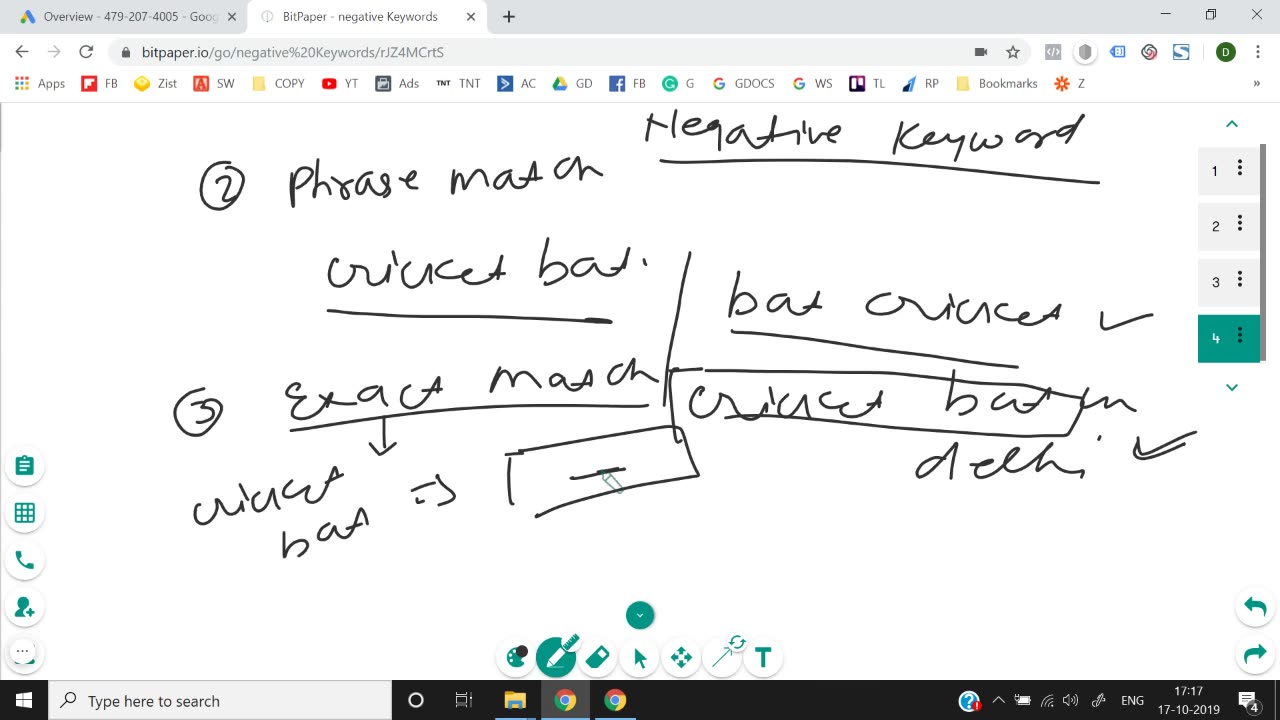 Overview - 479-207-4005 - Goog
BitPaper - negative Keywords
bitpaper.io/go/negative%20Keywords/rJZ4MCrtS
D
Apps FB Zist SW COPY YT Ads TNT TNT AC GD FB G GDOCS WS TL RP Bookmarks Z »
Negative Keyword
② Phrase match
cricket bat.
bat cricket ✓
③ Exact match
cricket bat in
delhi ✓
cricket
bat ⇒
1
2
3
4
T
Type here to search
ENG
17:17
17-10-2019
4